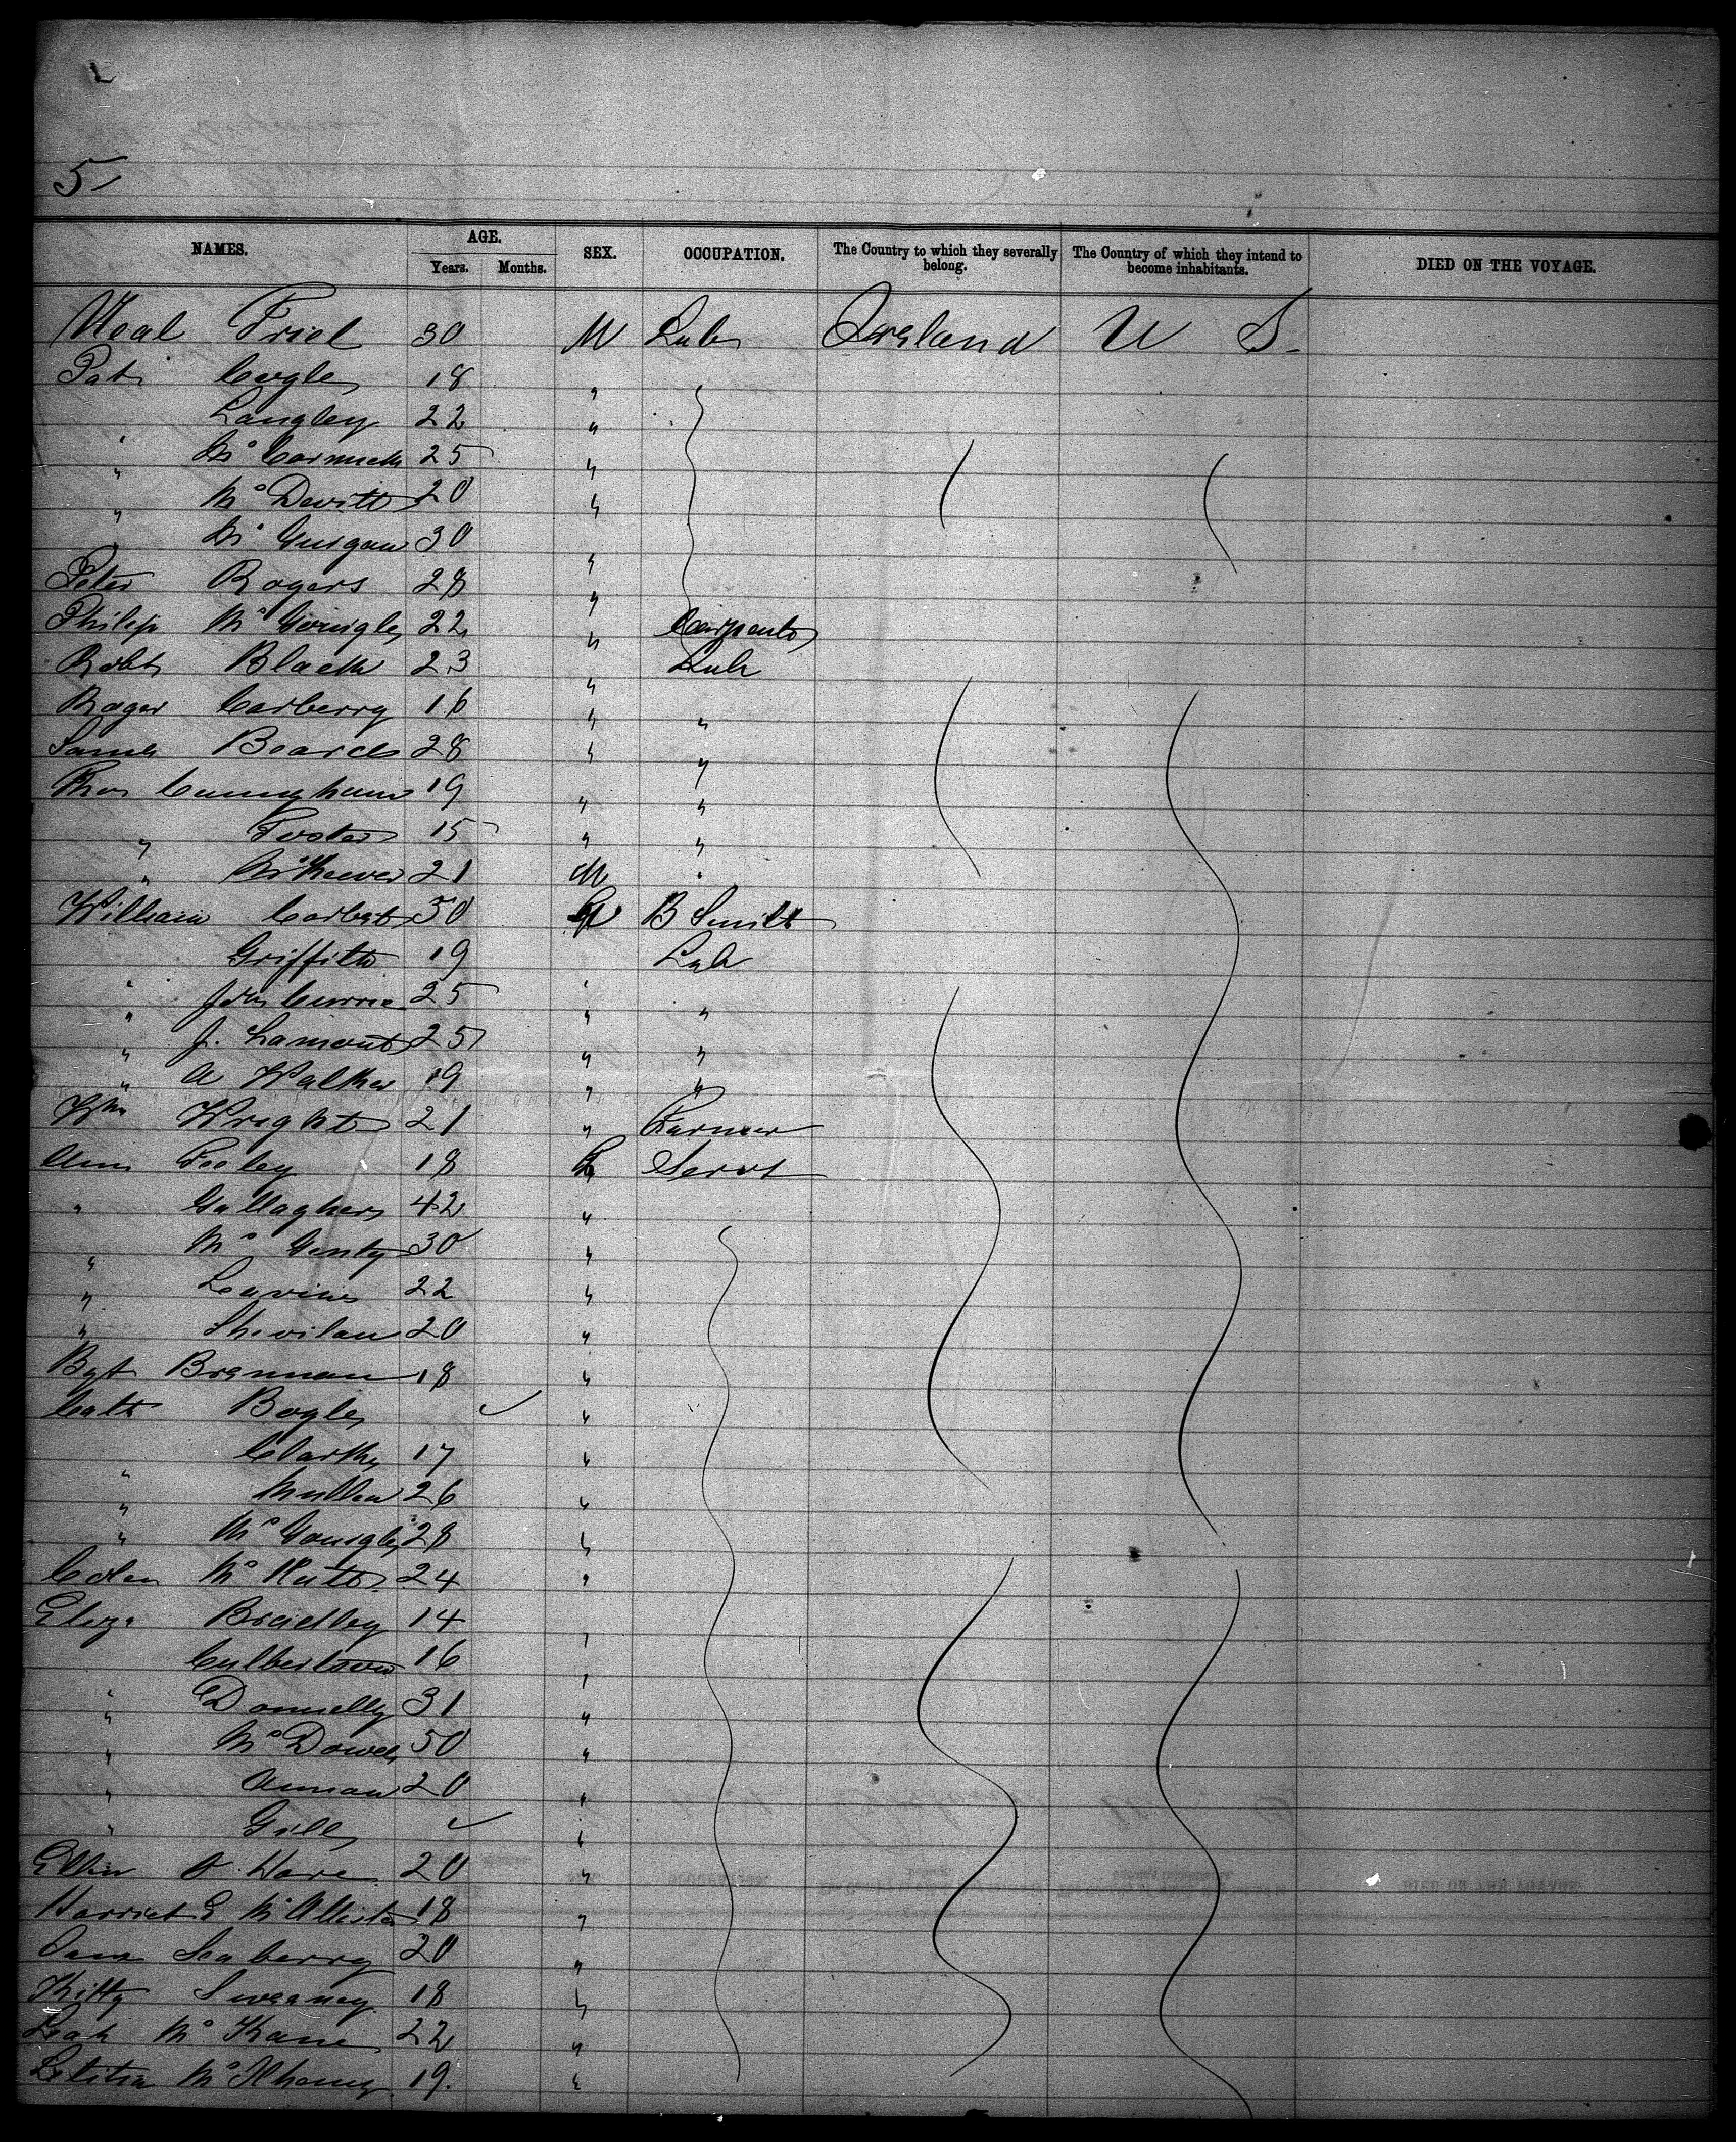 5
NAMES. AGE. SEX. OCCUPATION. The Country to which they severally belong. The Country of which they intend to become inhabitants. DIED ON THE VOYAGE.
Years. Months.
Neal Friel 30 M Lab Ireland U S
Pat Cogle 18 "
Langley 22 "
" McCormick 25 "
" McDevitt 20 "
" McGuigan 30 "
Peter Rogers 28 "
Philip McGonigle 22 " Carpenter
Robt Black 23 " Lab
Roger Carberry 16 " "
Saml Beard 28 " "
Thos Cunningham 19 " "
" Foster 15 " "
" McKeever 21 M "
William Corbet 50 B Smith
Griffith 19 Lab
" Jas Currie 25 " "
" J. Lamont 25 " "
" A Walker 19 " "
Wm Wright 21 " Farmer
Ann Feeley 18 F Servt
" Gallagher 42 "
" McGinty 30 "
" 22 "
" Shevilan 20 "
Bgt Brennan 18 "
Cath Bogle ✓ "
" 17 "
" Mullen 26 "
" McGonigle 28 "
McNatt 24 "
Eliza Bradley 14 "
Culbertson 16 "
" Donnelly 31 "
" McDowell 50 "
" Annan 20 "
" Gill ✓ "
Ellen O'Hare 20 "
Harriet E McAllister 18 "
Jane Seaberry 20 "
Kitty Sweeney 18 "
Leah McKane 22 "
Letitia 19. "